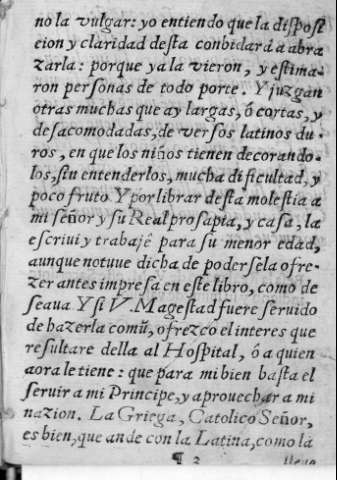 no la vulgar: yo entiendo que la disposi
cion y claridad desta conbidará a abra
zarla: porque ya la vieron, y estima-
ron personas de todo porte. Y juzgan
otras muchas que ay largas, ó cortas, y
desacomodadas, de versos latinos du-
ros, en que los niños tienen decorando-
los, sin entenderlos, mucha dificultad, y
poco fruto Y por librar desta molestia a
mi señor y su Real prosapia, y casa, la
escriui y trabajé para su menor edad,
aunque notuue dicha de podersela ofre-
zer antes impresa en este libro, como de
seaua Y si V. Magestad fuere seruido
de hazerla comũ, ofrezco el interes que
resultare della al Hospital, ó a quien
aora le tiene: que para mi bien basta el
seruir a mi Principe, y aprouechar a mi
nazion. La Griega, Catolico Señor,
es bien, que ande con la Latina, como la
¶ 2